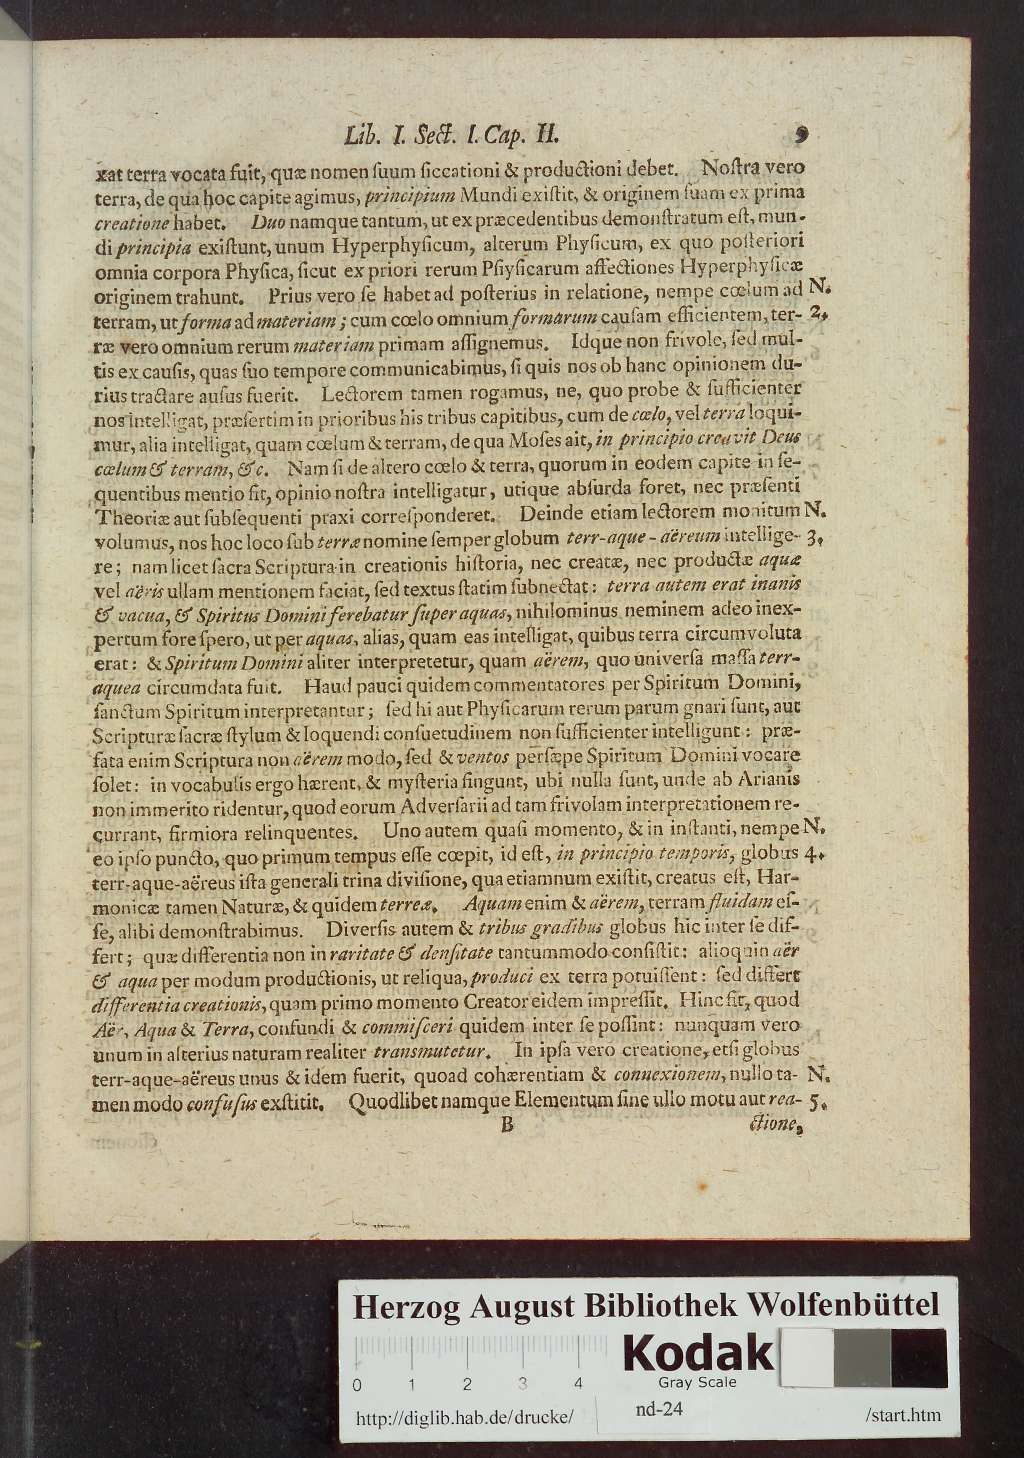 Lib. I. Sect. I. Cap. II. 9
xat terra vocata fuit, quæ nomen ſuum ſiccationi & productioni debet. Noſtra vero
terra, de qua hoc capite agimus, principium Mundi exiſtit, & originem ſuam ex prima
creatione habet. Duo namque tantum, ut ex præcedentibus demonſtratum eſt, mun-
di principia exiſtunt, unum Hyperphyſicum, alterum Phyſicum, ex quo poſteriori
omnia corpora Phyſica, ſicut ex priori rerum Pſiyſicarum affectiones Hyperphyſicæ
originem trahunt. Prius vero ſe habet ad poſterius in relatione, nempe cœlum ad N.
terram, ut forma ad materiam; cum cœlo omnium formarum cauſam efficientem, ter- 2.
ræ vero omnium rerum materiam primam aſſignemus. Idque non frivole, ſed mul-
tis ex cauſis, quas ſuo tempore communicabimus, ſi quis nos ob hanc opinionem du-
rius tractare auſus fuerit. Lectorem tamen rogamus, ne, quo probe & ſufficienter
nos intelligat, præſertim in prioribus his tribus capitibus, cum de cœlo, vel terra loqui-
mur, alia intelligat, quam cœlum & terram, de qua Moſes ait, in principio creavit Deus
cœlum & terram, &c. Nam ſi de altero cœlo & terra, quorum in eodem capite in ſe-
quentibus mentio fit, opinio noſtra intelligatur, utique abſurda foret, nec præſenti
Theoriæ aut ſubſequenti praxi correſponderet. Deinde etiam lectorem monitum N.
volumus, nos hoc loco ſub terræ nomine ſemper globum terr-aque-aëreum intellige- 3.
re; nam licet ſacra Scriptura in creationis hiſtoria, nec creatæ, nec productæ aquæ
vel aëris ullam mentionem faciat, ſed textus ſtatim ſubnectat: terra autem erat inanis
& vacua, & Spiritus Domini ferebatur ſuper aquas, nihilominus neminem adeo inex-
pertum fore ſpero, ut per aquas, alias, quam eas intelligat, quibus terra circumvoluta
erat: & Spiritum Domini aliter interpretetur, quam aërem, quo univerſa maſſa terr-
aquea circumdata fuit. Haud pauci quidem commentatores per Spiritum Domini,
ſanctum Spiritum interpretantur; ſed hi aut Phyſicarum rerum parum gnari ſunt, aut
Scripturæ ſacræ ſtylum & loquendi conſuetudinem non ſufficienter intelligunt: præ-
fata enim Scriptura non aërem modo, ſed & ventos perſæpe Spiritum Domini vocare
ſolet: in vocabulis ergo hærent, & myſteria fingunt, ubi nulla ſunt, unde ab Arianis
non immerito ridentur, quod eorum Adverſarii ad tam frivolam interpretationem re-
currant, firmiora relinquentes. Uno autem quaſi momento, & in inſtanti, nempe N.
eo ipſo puncto, quo primum tempus eſſe cœpit, id eſt, in principio temporis, globus 4.
terr-aque-aëreus iſta generali trina diviſione, qua etiamnum exiſtit, creatus eſt, Har-
monicæ tamen Naturæ, & quidem terreæ. Aquam enim & aërem, terram fluidam eſ-
ſe, alibi demonſtrabimus. Diverſis autem & tribus gradibus globus hic inter ſe dif-
fert; quæ differentia non in raritate & denſitate tantummodo conſiſtit: alioquin aër
& aqua per modum productionis, ut reliqua, produci ex terra potuiſſent: ſed differt
differentia creationis, quam primo momento Creator eidem impreſſit. Hinc fit, quod
Aër, Aqua & Terra, confundi & commiſceri quidem inter ſe poſſint: nunquam vero
unum in alterius naturam realiter transmutetur. In ipſa vero creatione, etſi globus
terr-aque-aëreus unus & idem fuerit, quoad cohærentiam & connexionem, nullo ta- N.
men modo confuſus exſtitit. Quodlibet namque Elementum ſine ullo motu aut rea- 5.
B ctione,
Herzog August Bibliothek Wolfenbüttel
0 1 2 3 4
Kodak
Gray Scale
http://diglib.hab.de/drucke/ nd-24 /start.htm